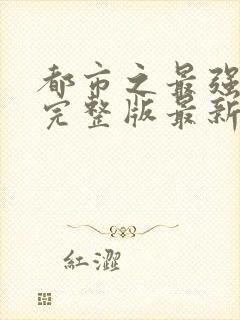 都市之最强
完整版最新
红涩